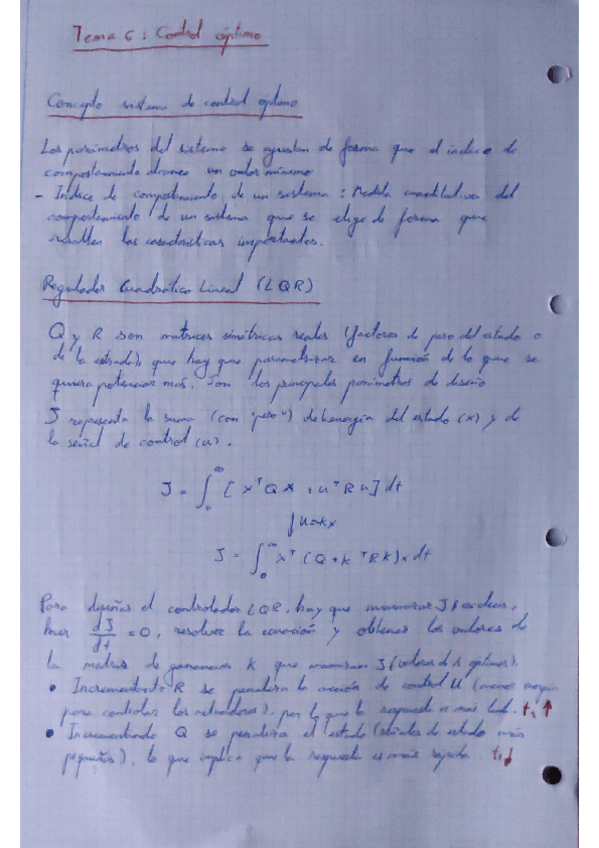 Tema 6: Control óptimo
Concepto sistema de control óptimo
Los parámetros del sistema se ajustan de forma que el índice de
comportamiento alcance un valor mínimo
- Índice de comportamiento de un sistema: Medida cuantitativa del
comportamiento de un sistema que se elige de forma que
resulten las características importantes.
Regulador Cuadrático Lineal (LQR)
Q y R son matrices simétricas reales (factores de peso del estado o
de la entrada), que hay que parametrizar en función de lo que se
quiera potenciar más. Son los principales parámetros de diseño
J representa la suma (con "peso") de la energía del estado (x) y de
la señal de control (u).
J = ∫₀^∞ [x^T Q x + u^T R u] dt
∫ u=-kx
J = ∫₀^∞ x^T (Q + k^T R k) x dt
Para diseñar el controlador LQR, hay que minimizar J, es decir,
hacer dJ/dt = 0, resolver la ecuación y obtener los valores de
la matriz de ganancias K que minimizan J (valores de k óptimos).
• Incrementando R se penaliza la acción de control U (menos energía
para controlar los actuadores), por lo que la respuesta es más lenta. ts ↑
• Incrementando Q se penaliza el estado (señales de estado más
pequeñas), lo que implica que la respuesta es más rápida. ts ↓